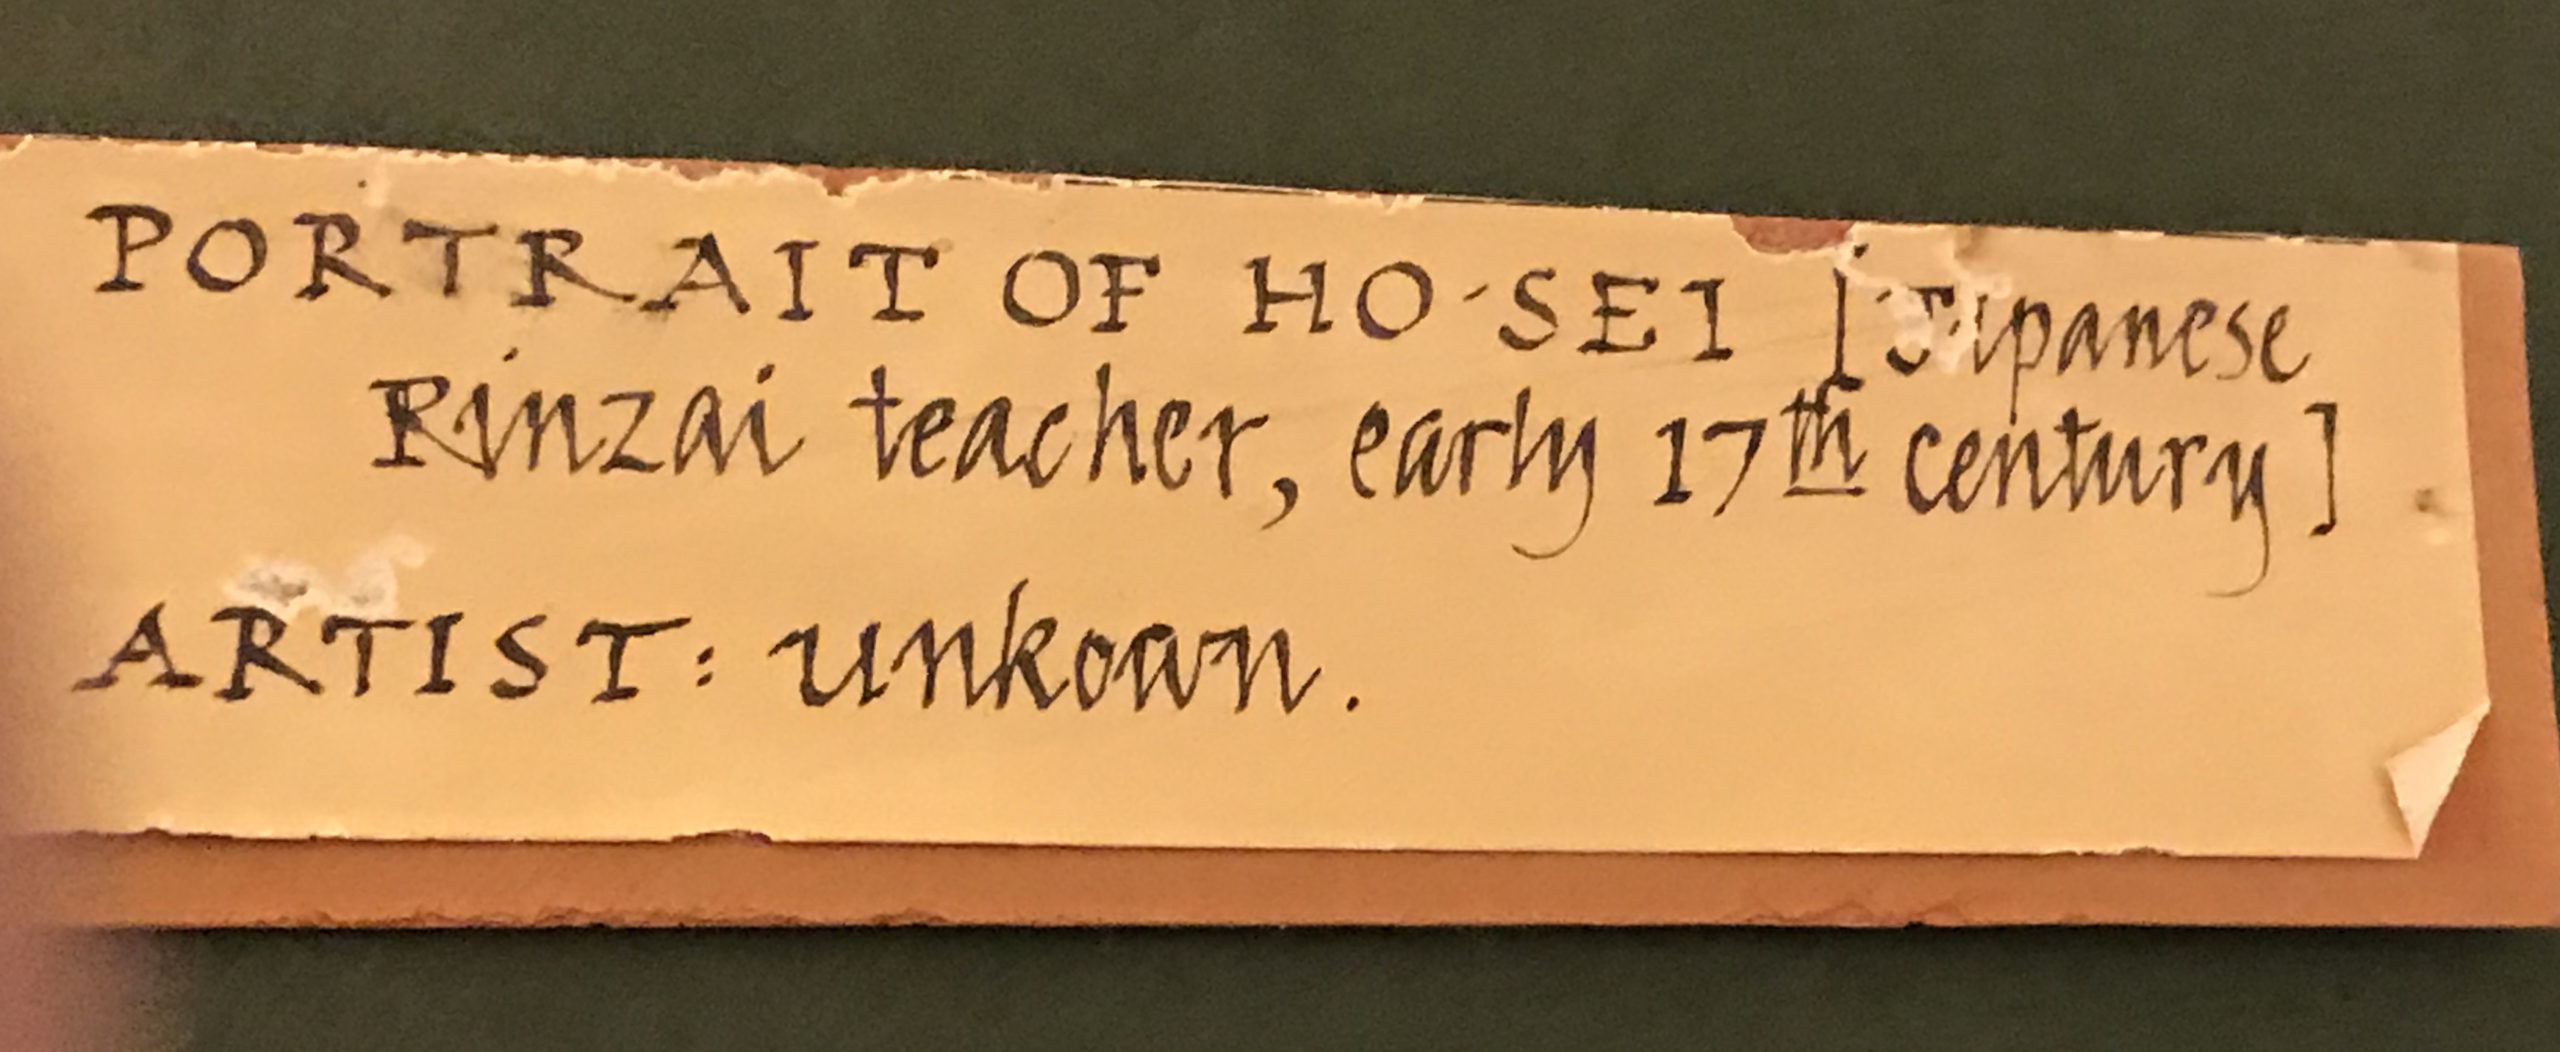 PORTRAIT OF HO-SEI [Japanese
Rinzai teacher, early 17th century]
ARTIST: unkoan.